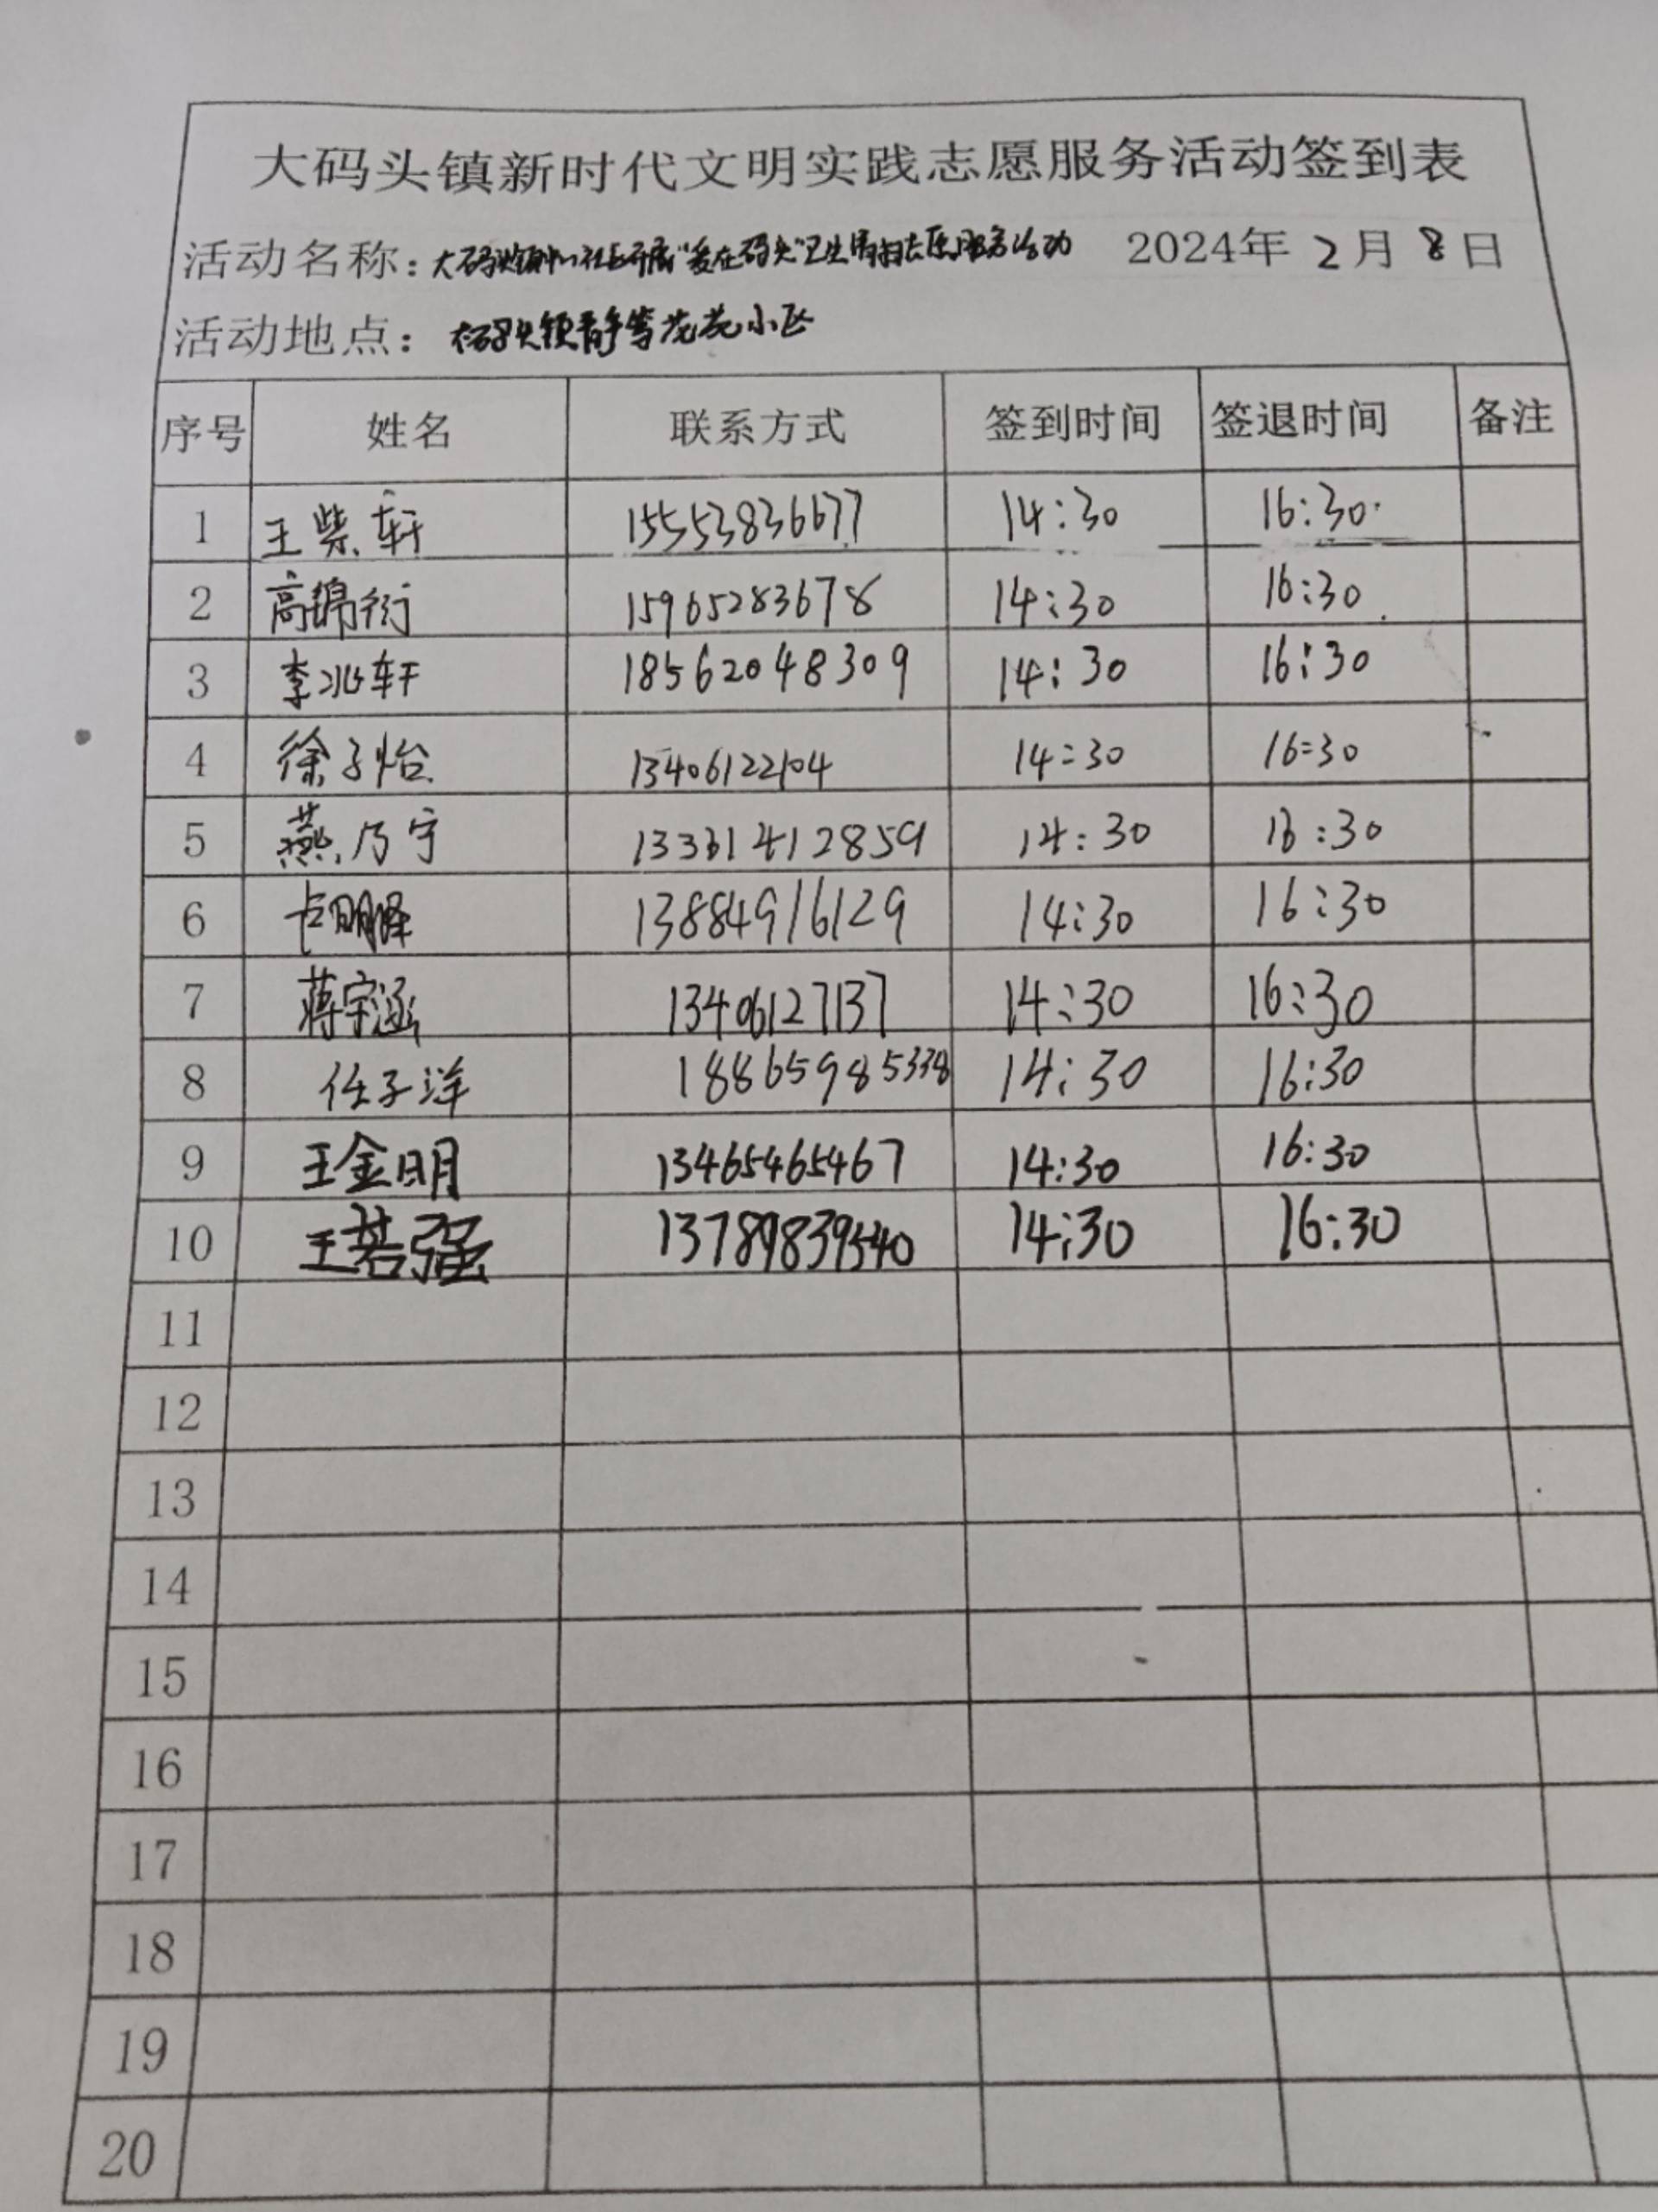 大码头镇新时代文明实践志愿服务活动签到表
活动名称：大码头镇中心社区开展“爱在码头”卫生清扫志愿服务活动 2024年2月8日
活动地点：大码头镇静馨花苑小区
序号 姓名 联系方式 签到时间 签退时间 备注
1 王紫轩 15553836677 14:30 16:30
2 高锦衍 15965283678 14:30 16:30
3 李兆轩 18562048309 14:30 16:30
4 徐子怡 13406122104 14:30 16:30
5 燕乃宁 14:30 16:30
6 13884916129 14:30 16:30
7 蒋宇涵 13406127137 14:30 16:30
8 任子洋 14:30 16:30
9 王金明 13465465467 14:30 16:30
10 王若强 13789839540 14:30 16:30
11
12
13
14
15
16
17
18
19
20